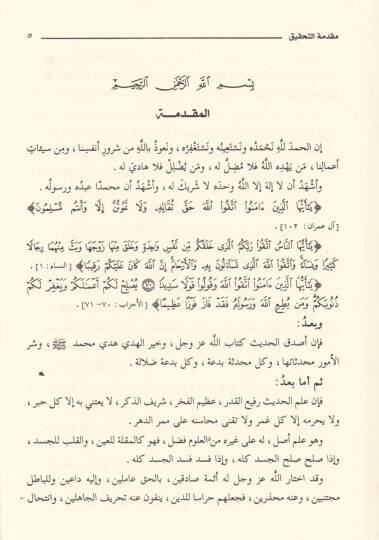 مقدمة التحقيق ٥
بِسْمِ اللَّهِ الرَّحْمَنِ الرَّحِيمِ
المقدمة
إن الحمدَ للَّهِ نَحْمَدُه ونَسْتَعِينُه ونَسْتَغْفِرُه ، ونَعوذُ باللَّهِ من شرورِ أنفسِنا ، ومِن سيئاتِ
أعمالِنا ، مَن يَهْدِه اللَّهُ فلا مُضِلَّ له ، ومَن يُضْلِلْ فلا هاديَ له .
وأشْهَدُ أن لا إلهَ إلا اللَّهُ وحدَه لا شَريكَ له ، وأشْهَدُ أن محمدًا عبدُه ورسولُه .
﴿يَٰٓأَيُّهَا ٱلَّذِينَ ءَامَنُوا۟ ٱتَّقُوا۟ ٱللَّهَ حَقَّ تُقَاتِهِۦ وَلَا تَمُوتُنَّ إِلَّا وَأَنتُم مُّسْلِمُونَ﴾
[آل عمران : ١٠٢] .
﴿يَٰٓأَيُّهَا ٱلنَّاسُ ٱتَّقُوا۟ رَبَّكُمُ ٱلَّذِى خَلَقَكُم مِّن نَّفْسٍ وَٰحِدَةٍ وَخَلَقَ مِنْهَا زَوْجَهَا وَبَثَّ مِنْهُمَا رِجَالًا
كَثِيرًا وَنِسَآءً ۚ وَٱتَّقُوا۟ ٱللَّهَ ٱلَّذِى تَسَآءَلُونَ بِهِۦ وَٱلْأَرْحَامَ ۚ إِنَّ ٱللَّهَ كَانَ عَلَيْكُمْ رَقِيبًا﴾ [النساء : ١] .
﴿يَٰٓأَيُّهَا ٱلَّذِينَ ءَامَنُوا۟ ٱتَّقُوا۟ ٱللَّهَ وَقُولُوا۟ قَوْلًا سَدِيدًا ۝ يُصْلِحْ لَكُمْ أَعْمَٰلَكُمْ وَيَغْفِرْ لَكُمْ
ذُنُوبَكُمْ ۗ وَمَن يُطِعِ ٱللَّهَ وَرَسُولَهُۥ فَقَدْ فَازَ فَوْزًا عَظِيمًا﴾ [الأحزاب : ٧٠ - ٧١] .
وبعدُ :
فإن أصدق الحديث كتاب اللَّه عز وجل ، وخير الهدي هدي محمد ﷺ ، وشر
الأمور محدثاتها ، وكل محدثة بدعة ، وكل بدعة ضلالة .
ثم أما بعدُ :
فإن علم الحديث رفيع القدر ، عظيم الفخر ، شريف الذكر ، لا يعتني به إلا كل حبر ،
ولا يحرمه إلا كل غمر ولا تفنى محاسنه على ممر الدهر .
وهو علم أصل ، له على غيره من العلوم فضل ، فهو كالمقلة للعين ، والقلب للجسد ،
إذا صلح صلح الجسد كله ، وإذا فسد فسد الجسد كله .
وقد اختار اللَّه عز وجل له أئمة صادقين ، بالحق عاملين ، وإليه داعين وللباطل
مجتنبين ، وعنه محذرين ، فجعلهم حراسا للدين ، ينفون عنه تحريف الجاهلين ، وانتحال